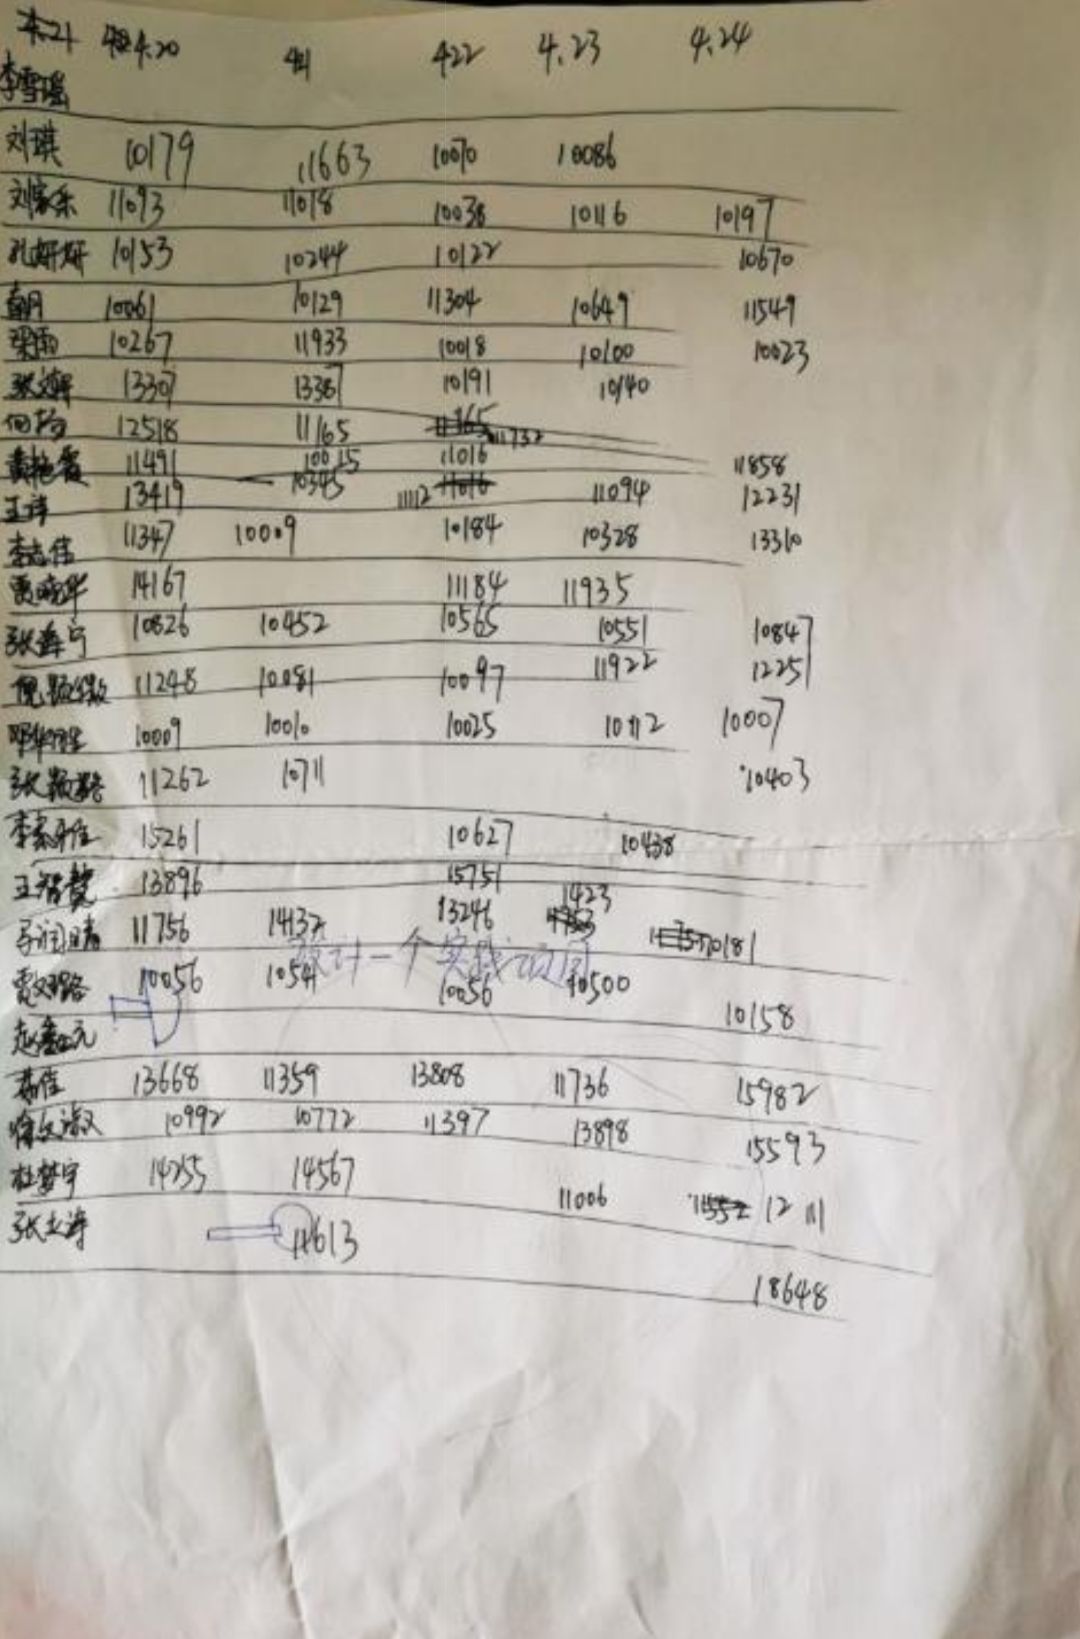 4.20 421 422 4.23 4.24
李雪瑶
刘琪 10179 11663 10070 10086
刘家乐 11093 11018 10038 10116 10197
孔妍妍 10153 10244 10122 10670
10061 10129 11304 10649 11549
梁雨 10267 11933 10018 10100 10023
13307 13367 10191 10140
12518 11165 11732
黄艳霞 11491 10015 11016 11858
王洋 13419 10345 11112 11094 12231
李志佳 11347 10009 10184 10328 13310
贾晓华 14167 11184 11935
张海宁 10826 10452 10565 10551 10847
11248 10081 10097 11922 12251
10009 10010 10025 10112 10007
张 11262 10711 10403
李 佳 15261 10627 10438
王智慧 13896 15751
11756 14137 13246 1423 10181
设计一个实践
10056 10541 10056 10500
赵鑫元 10158
佳 13668 11359 13808 11736 15982
徐文淑 10992 10772 11397 13898 15593
杜梦宇 14255 14567 11006 12111
张志涛 11613
18648